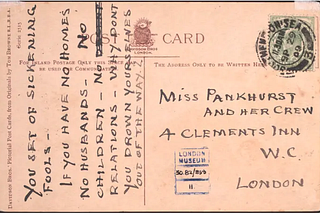 POST CARD
DAVIDSON BROS
LONDON
FOR INLAND POSTAGE ONLY THIS
BE USED FOR COMMUNICATION
THE ADDRESS ONLY TO BE WRITTEN HERE
DAVIDSON BROS. PICTORIAL POST CARDS, FROM ORIGINALS BY TOM BROWNE R.I., R.B.A.
YOU SET OF SICKENING
FOOLS -
IF YOU HAVE NO HOMES
NO HUSBANDS, - NO
CHILDREN - NO
RELATIONS - WHY DONT
YOU DROWN YOURSELVES
OUT OF THE WAY?
MISS PANKHURST
AND HER CREW
4 CLEMENTS INN
W.C.
LONDON
LONDON
MUSEUM
50.82/
11